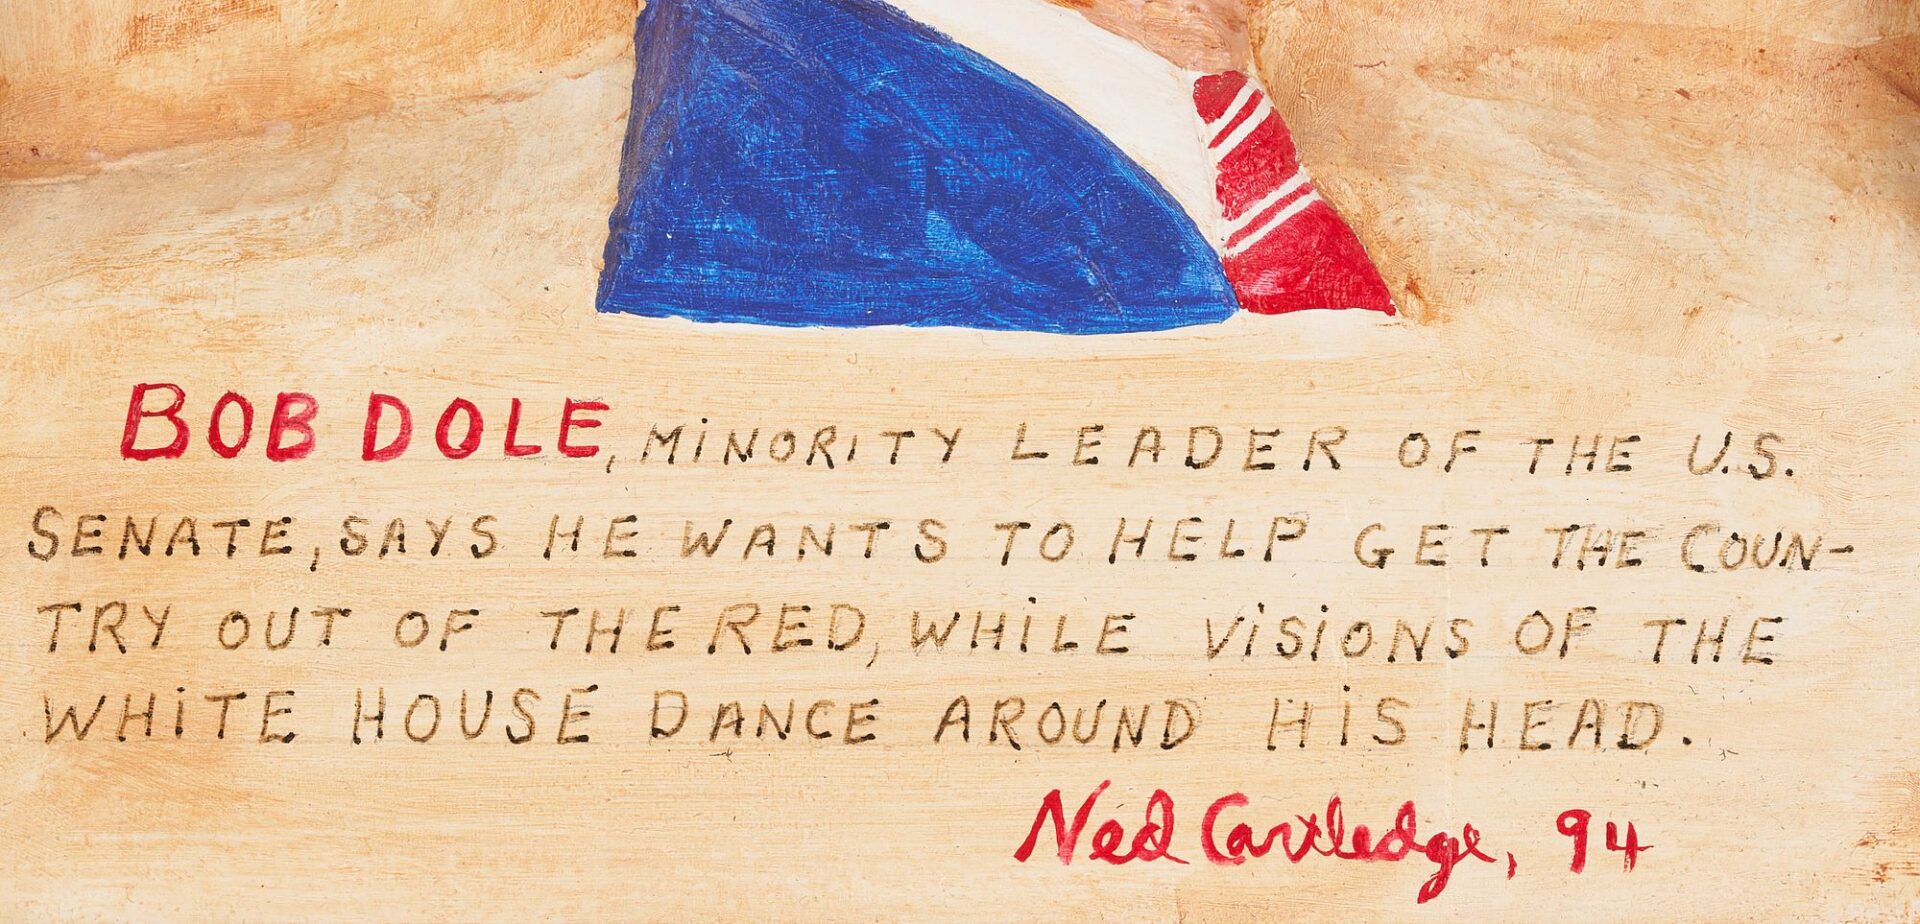 BOB DOLE, MINORITY LEADER OF THE U.S.
SENATE, SAYS HE WANTS TO HELP GET THE COUN-
TRY OUT OF THE RED, WHILE VISIONS OF THE
WHITE HOUSE DANCE AROUND HIS HEAD.
Ned Cartledge, 94